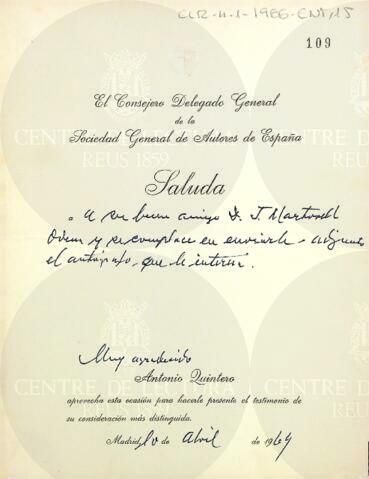 CLR-4.1-1966-ENT,15
109
El Consejero Delegado General
de la
Sociedad General de Autores de España
CENTRE DE LECTURA
REUS 1859
Saluda
a su buen amigo D. J. Martorell
y se complace en enviarle adjunto
el autógrafo que le interesa.
Muy agradecido
Antonio Quintero
aprovecha esta ocasión para hacerle presente el testimonio de
su consideración más distinguida.
CENTRE DE LECTURA
REUS
Madrid, 10 de Abril de 1964